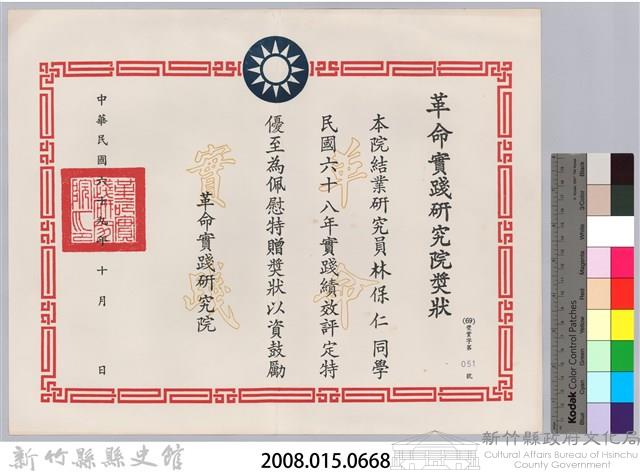 革命實踐研究院獎狀
(69)實字第
051
號
本院結業研究員林保仁同學
民國六十八年實踐績效評定特
優至為佩慰特贈獎狀以資鼓勵
革命
實踐
革命實踐研究院
中華民國六十九年十月 日
革命實踐研究院印
Kodak Color Control Patches
Blue
Cyan
Green
Yellow
Red
Magenta
White
3/Color
Black
新竹縣縣史館
2008.015.0668
新竹縣政府文化局
Cultural Affairs Bureau of Hsinchu County Government